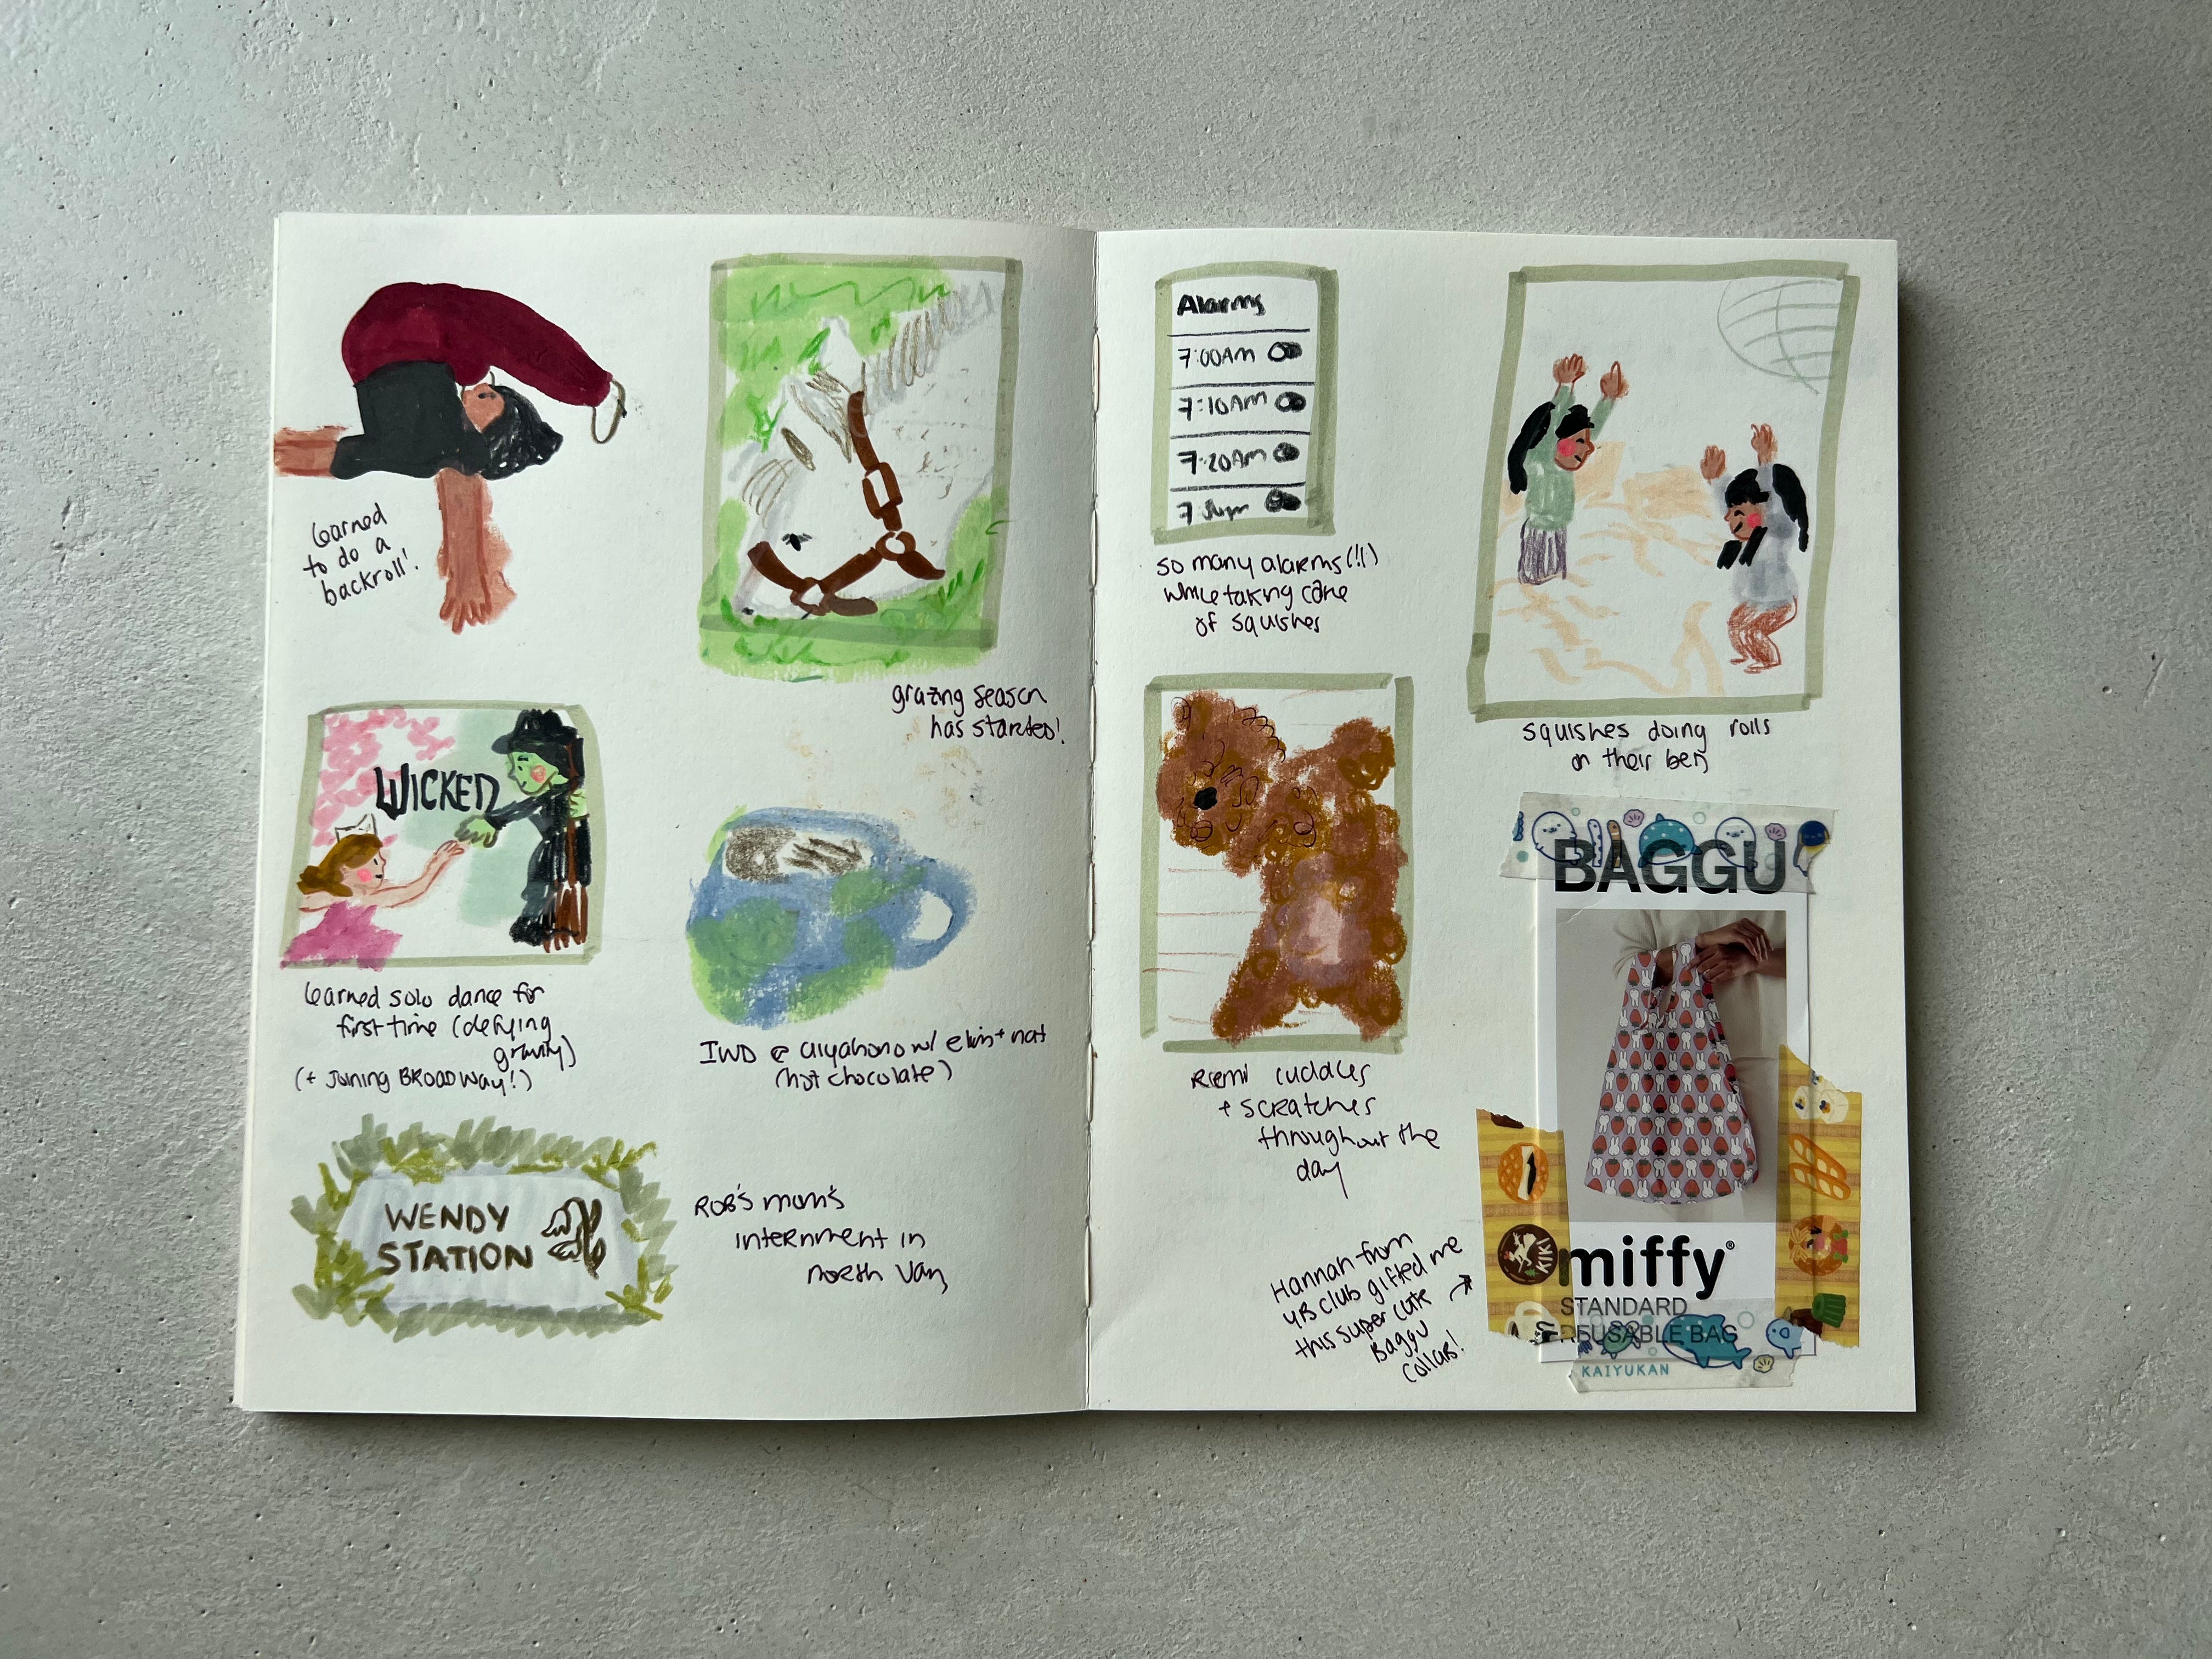 learned
to do a
backroll!
grazing season
has started!
WICKED
learned solo dance for
first time (defying
gravity)
(+ joining BROADWAY!)
IWD @ aiyahono w/ elkin + nat
(hot chocolate)
WENDY
STATION
ROB'S mom's
internment in
north van
Alarms
7:00AM
7:10AM
7:20AM
7
so many alarms (!!)
while taking care
of squishes
squishes doing rolls
on their bed
Remi cuddles
+ scratches
throughout the
day
Hannah from
YB club gifted me
this super cute
Baggu
collab!
BAGGU
KIKI
miffy®
STANDARD
REUSABLE BAG
KAIYUKAN